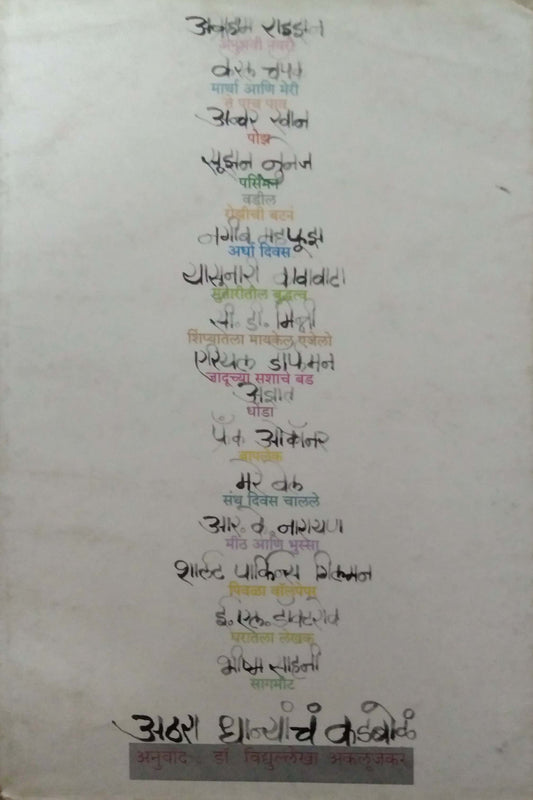 अब्राहम राइझन
अनुभवी नवरा
कारेल चॅपेक
मार्था आणि मेरी
ते पाच पाव
अन्वर खान
पोझ
सूझन नुनेज
पर्सिमन
वडील
रोझीची बटनं
नगीब महफूझ
अर्धा दिवस
यासुनारी कावाबाटा
सुतारीतील बुद्धत्व
सी. डी. मिन्नी
शिंप्यातला मायकेल एंजेलो
एरियल डॉर्फमन
जादूच्या सशाचे बंड
अज्ञात
धोंडा
फ्रँक ओकॉनर
बापलेक
मरे बेल
संथ दिवस चालले
आर. के. नारायण
मीठ आणि भुस्सा
शार्लट पार्किन्स गिलमन
पिवळा वॉलपेपर
ई. एल. डॉक्टरोव
घरातला लेखक
भीष्म साहनी
सागमीट
अठरा धान्यांचं कडबोळं
अनुवाद : डॉ विद्युल्लेखा अकलूजकर